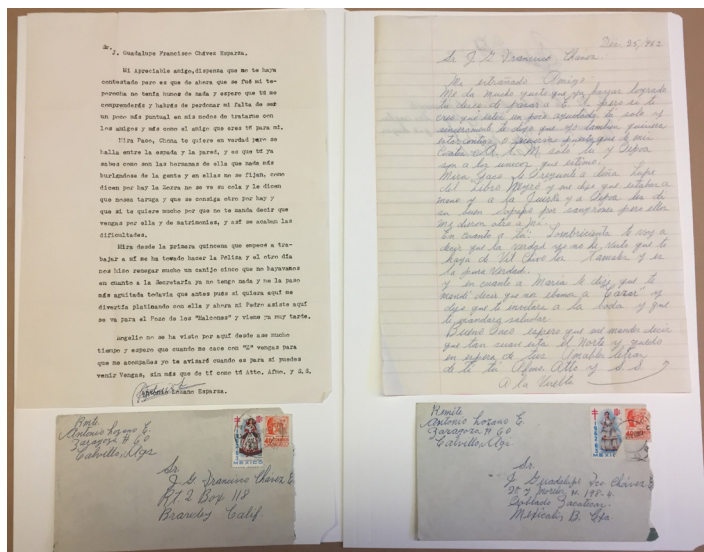 Sr.
J. Guadalupe Francisco Chávez Esparza.
Mi Apreciable amigo, dispensa que no te haya
contestado pero es que de ahora que se fué mi te-
perocha no tenía humor de nada y espero que tú me
comprenderás y habrás de perdonar mi falta de ser
un poco más puntual en mis modos de tratarme con
los amigos y más como el amigo que eres tú para mi.
Mira Paco, Chona te quiere en verdad pero se
halla entre la espada y la pared, y es que tú ya
sabes como son las hermanas de ella que nada más
burlándose de la gente y en ellas no se fijan, como
dicen por hay la Zorra no se ve su cola y le dicen
que no sea taruga y que se consiga otro por hay y
que si te quiere mucho por que no te manda decir que
vengas por ella y de matrimonio, y así se acaban las
dificultades.
Mira desde la primera quincena que empecé a tra-
bajar a mí me ha tocado hacer la Póliza y el otro día
nos hizo renegar mucho un canijo cinco que no hayavamos
en cuanto a la Secretaría ya no tengo nada y me la paso
más aguitado todavía que antes pues si quiera aquí me
divertía platicando con ella y ahora mi Pedro asiste aquí
se va para el Pozo de los "Halcones" y viene ya muy tarde.
Rogelio no se ha visto por aquí desde ase mucho
tiempo y espero que cuando me case con "E" vengas para
que me acompañes yo te avisaré cuando es para si puedes
venir Vengas, sin más que de tí como tú Atto. Afmo. y S.S.
Antonio Lozano Esparza.
Rmte
Antonio Lozano E.
Zaragoza # 60
Calvillo, Ags.
Sr.
J. G. Francisco Chávez E.
Rt 2 Box. 118
Brawley Calif.
Dic. 25, 962
Sr. J. G. Francisco Chávez
Mi extrañado Amigo:
Me da mucho gusto que ya hayas logrado
tu deseo de pasar a E. U. pero si te
creo que estés un poco aguitado tu solo y
sinceramente te digo que yo también quisiera
estar contigo
son a los unicos que estimo.
Mira Paco le pregunté a doña Lupe
del Libro Negro y me dijo que estaban a
mano y a la
su buen
me dieron otro a mi.
En cuanto a la: Inabriciente te voy a
decir que la verdad yo no he visto que te
haya de Vil Chivo
la pura Verdad.
y en cuanto a Maria le dije que te
mandé decir que nos ibamos a "Cazar" y
dijo que la invitara a la boda y que
te mandara saludar.
Bueno Paco espero que me mandes decir
que tan suave esta el Norte y quedo
en espera de tus Amables letras
de ti tu Afmo. Atto y S.S.
A la Vuelta
Remite
Antonio Lozano E.
Zaragoza # 60
Calvillo, Ags.
Sr.
J. Guadalupe Fco Chávez E.
Poblado Zacatecas.
Mexicali, B. Cfa.